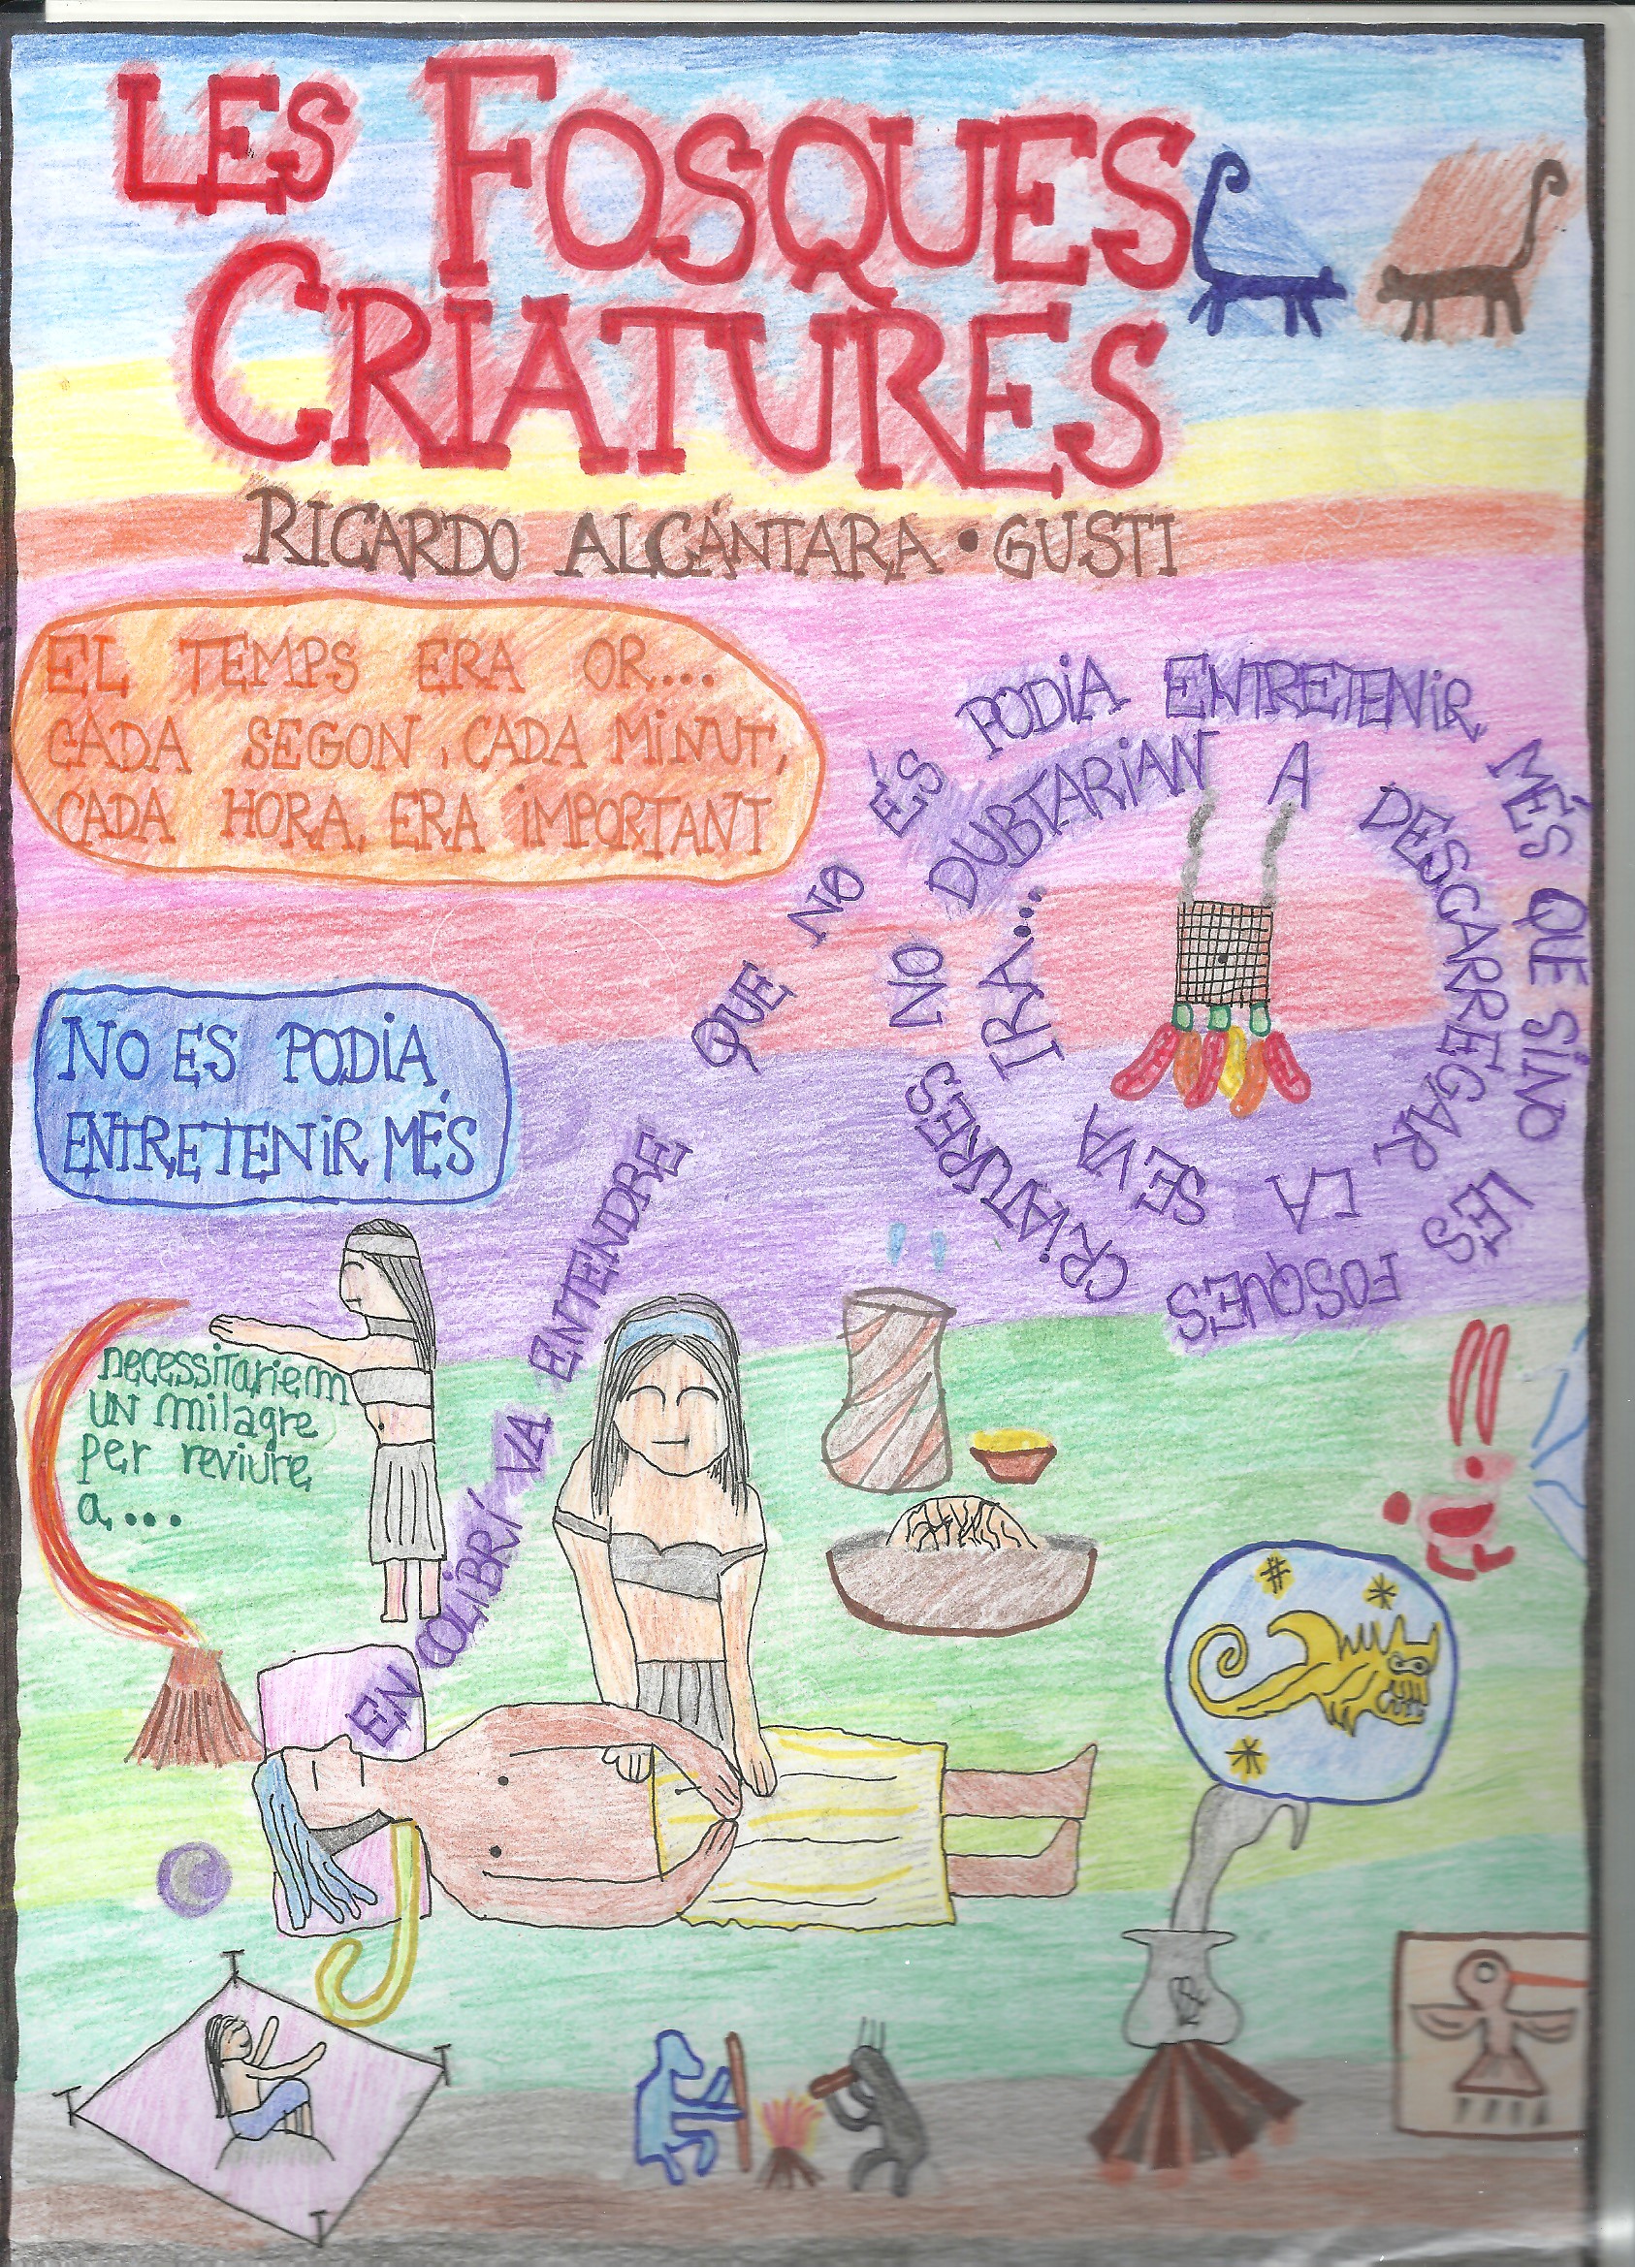 LES FOSQUES
CRIATURES
RICARDO ALCÁNTARA • GUSTI
EL TEMPS ERA OR...
CADA SEGON, CADA MINUT,
CADA HORA, ERA IMPORTANT
NO ES PODIA
ENTRETENIR MÉS
necessitariem
UN milagre
per reviure
a...
EN COLIBRÍ VA ENTENDRE QUE NO ÉS PODIA ENTRETENIR MÉS QUE SINO LES FOSQUES CRIATURES NO DUBTARIAN A DESCARREGAR LA SEVA IRA...